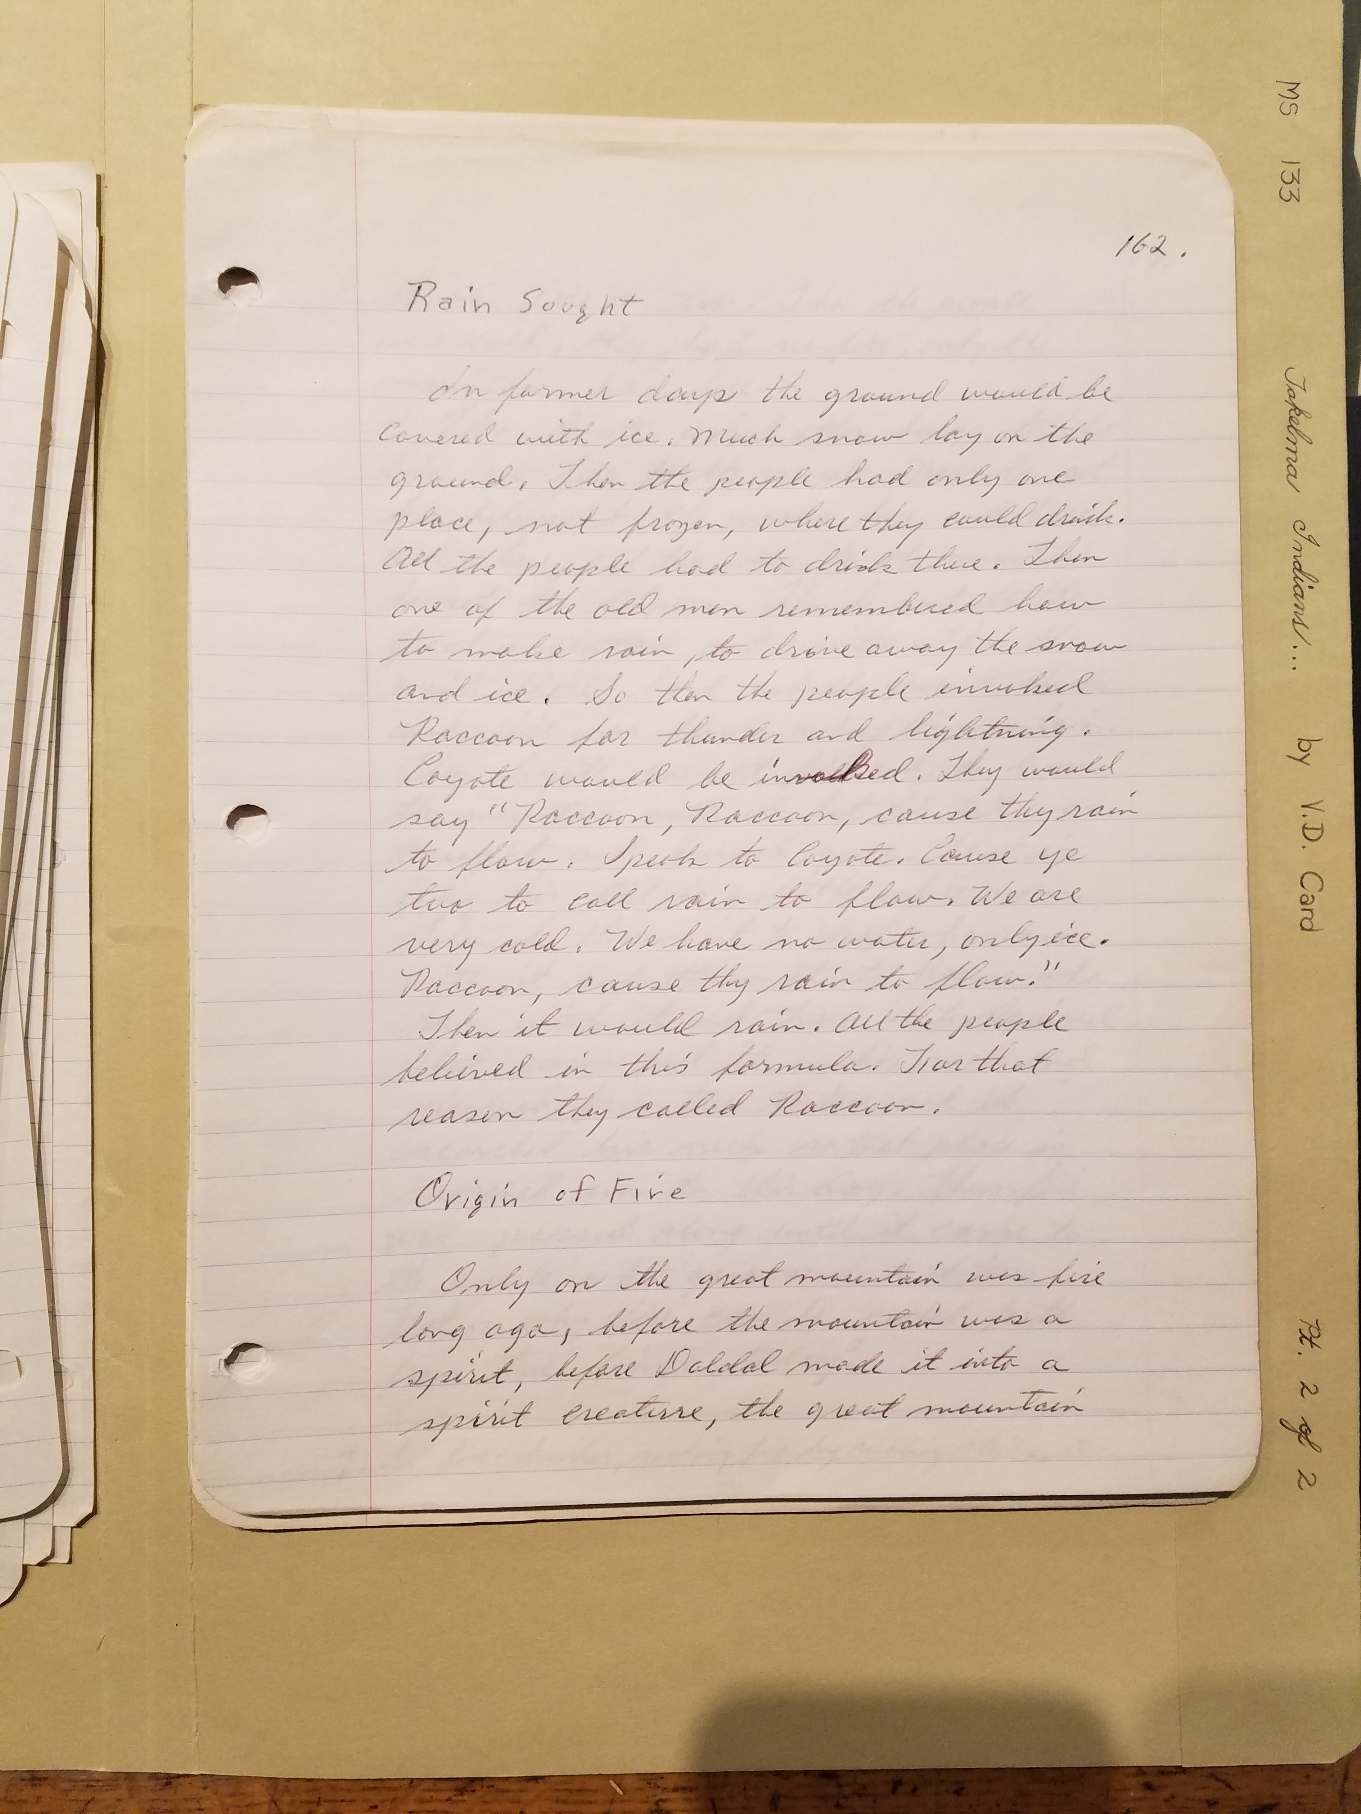 162.
Rain Sought
In former days the ground would be
covered with ice. Much snow lay on the
ground. Then the people had only one
place, not frozen, where they could drink.
All the people had to drink there. Then
one of the old men remembered how
to make rain, to drive away the snow
and ice. So then the people invoked
Raccoon for thunder and lightning.
Coyote would be invoked. They would
say "Raccoon, Raccoon, cause thy rain
to flow. Speak to Coyote. Cause ye
two to call rain to flow. We are
very cold. We have no water, only ice.
Raccoon, cause thy rain to flow."
Then it would rain. All the people
believed in this formula. For that
reason they called Raccoon.
Origin of Fire
Only on the great mountain was fire
long ago, before the mountain was a
spirit, before Daldal made it into a
spirit creature, the great mountain
MS 133 Takelma Indians... by V.D. Card Pt. 2 of 2